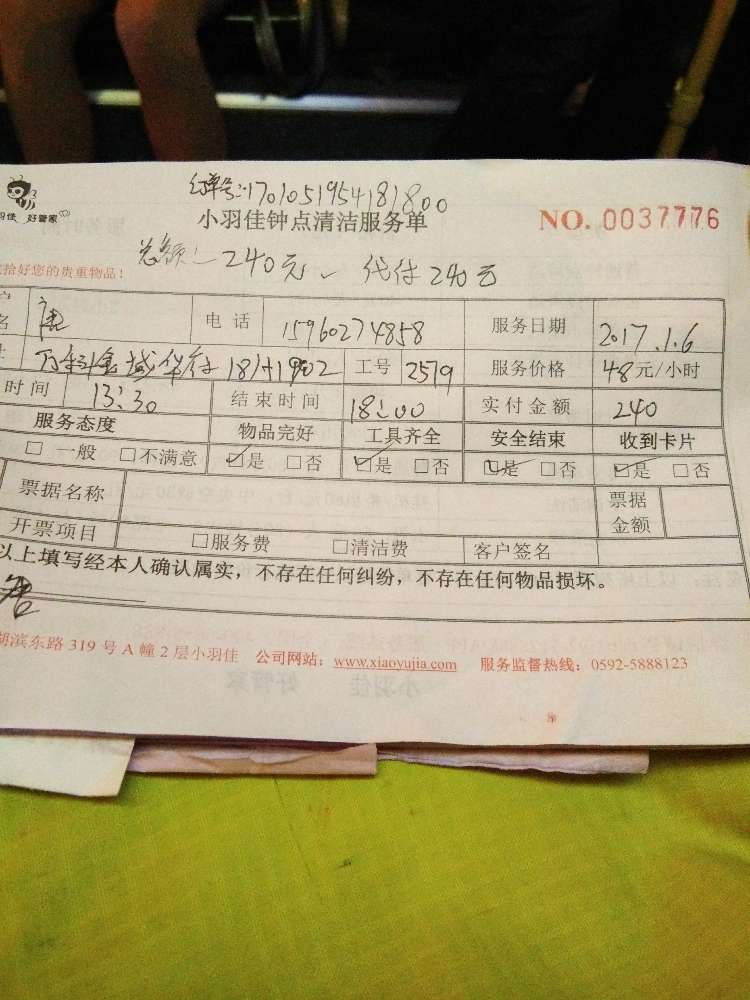 订单号:1701051954181800
好管家
小羽佳钟点清洁服务单
NO. 0037776
总额:240元 代付240元
拾好您的贵重物品!
名 唐 电话 15960274858 服务日期 2017.1.6
万科金域华府 18#1902 工号 2579 服务价格 48元/小时
时间 13:30 结束时间 18:00 实付金额 240
服务态度 物品完好 工具齐全 安全结束 收到卡片
□一般 □不满意 ☑是 □否 ☑是 □否 ☑是 □否 ☑是 □否
票据名称 票据金额
开票项目 □服务费 □清洁费 客户签名
以上填写经本人确认属实,不存在任何纠纷,不存在任何物品损坏。
唐
湖滨东路 319 号 A 幢 2 层小羽佳 公司网站:www.xiaoyujia.com 服务监督热线:0592-5888123